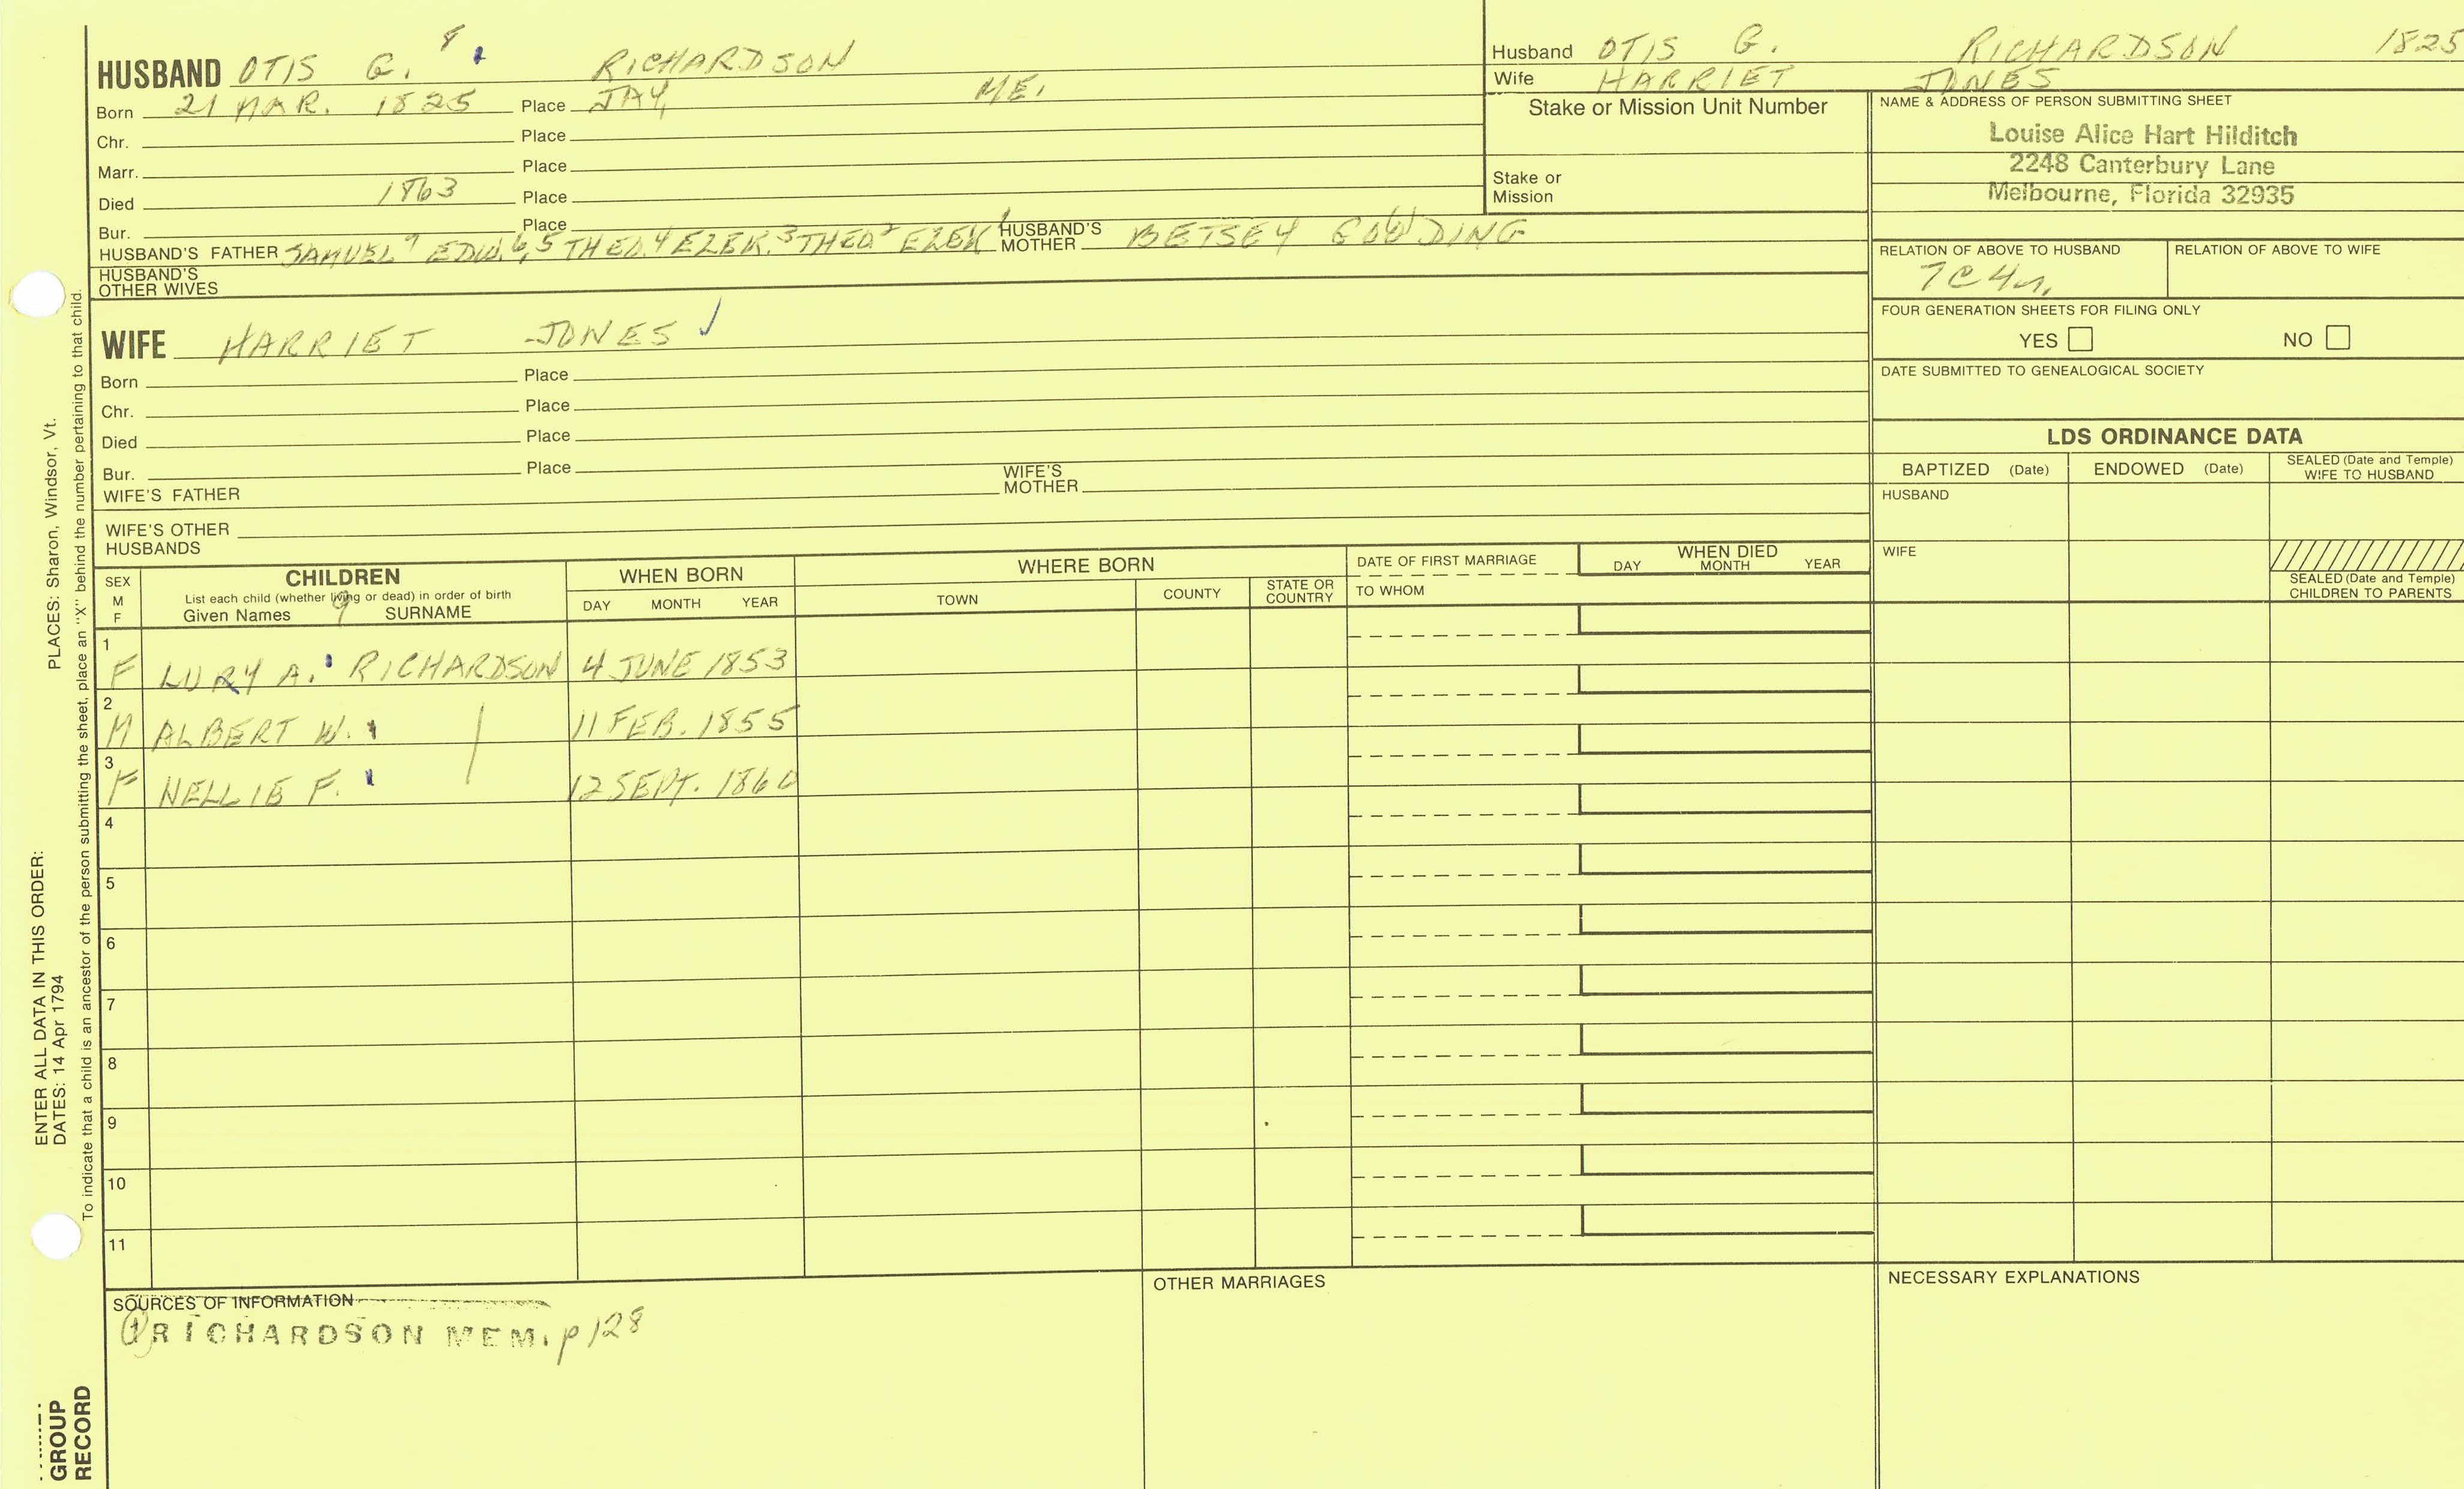 HUSBAND OTIS G. 8 RICHARDSON
Born 21 MAR. 1825 Place JAY, ME.
Chr. Place
Marr. Place
Died 1863 Place
Bur. Place
HUSBAND'S FATHER SAMUEL 7 EDW. 6,5 THEO. 4 EZEK. 3 THEO 2 EZEK 1 HUSBAND'S MOTHER BETSEY GOULDING
HUSBAND'S OTHER WIVES
Husband OTIS G. RICHARDSON 1825
Wife HARRIET JONES
Stake or Mission Unit Number
Stake or Mission
NAME & ADDRESS OF PERSON SUBMITTING SHEET
Louise Alice Hart Hilditch
2248 Canterbury Lane
Melbourne, Florida 32935
RELATION OF ABOVE TO HUSBAND RELATION OF ABOVE TO WIFE
7C4r.
FOUR GENERATION SHEETS FOR FILING ONLY
YES NO
DATE SUBMITTED TO GENEALOGICAL SOCIETY
WIFE HARRIET JONES ✓
Born Place
Chr. Place
Died Place
Bur. Place
WIFE'S FATHER WIFE'S MOTHER
WIFE'S OTHER HUSBANDS
LDS ORDINANCE DATA
BAPTIZED (Date) ENDOWED (Date) SEALED (Date and Temple) WIFE TO HUSBAND
HUSBAND
WIFE
SEALED (Date and Temple) CHILDREN TO PARENTS
SEX M F
CHILDREN
List each child (whether living or dead) in order of birth
Given Names 9 SURNAME
WHEN BORN
DAY MONTH YEAR
WHERE BORN
TOWN COUNTY STATE OR COUNTRY
DATE OF FIRST MARRIAGE
TO WHOM
WHEN DIED
DAY MONTH YEAR
1 F LURY A. RICHARDSON 4 JUNE 1853
2 M ALBERT W. 11 FEB. 1855
3 F NELLIE F. 12 SEPT. 1860
4
5
6
7
8
9
10
11
SOURCES OF INFORMATION
① RICHARDSON MEM. p 128
OTHER MARRIAGES
NECESSARY EXPLANATIONS
ENTER ALL DATA IN THIS ORDER:
DATES: 14 Apr 1794
PLACES: Sharon, Windsor, Vt.
To indicate that a child is an ancestor of the person submitting the sheet, place an "X" behind the number pertaining to that child.
GROUP
RECORD